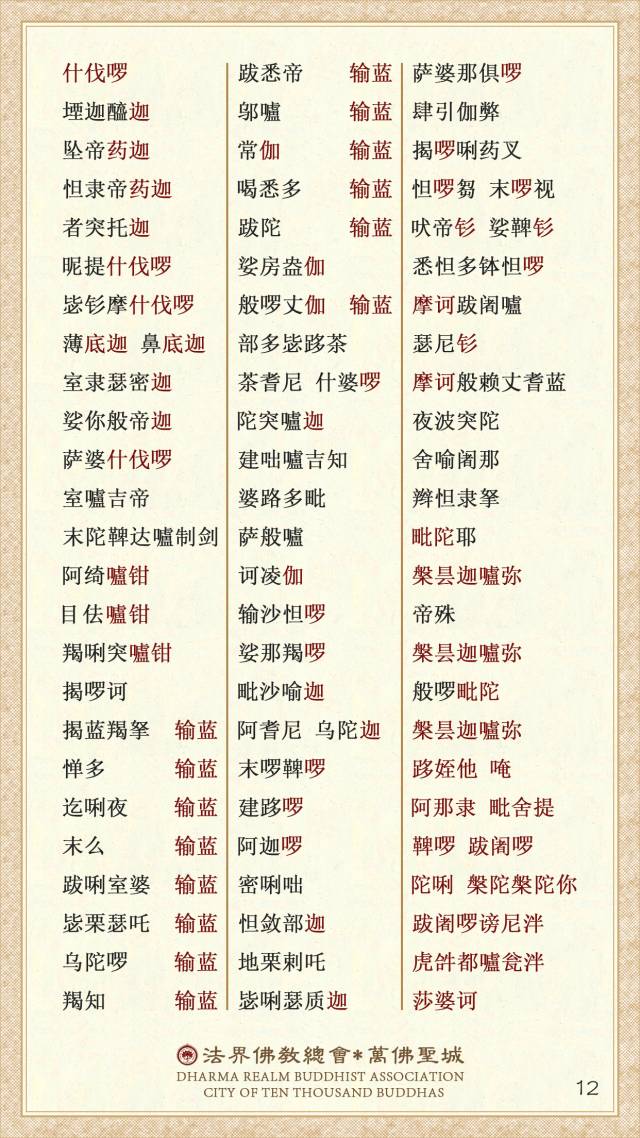 什伐啰
堙迦醯迦
坠帝药迦
怛隶帝药迦
者突托迦
昵提什伐啰
毖钐摩什伐啰
薄底迦 鼻底迦
室隶瑟密迦
娑你般帝迦
萨婆什伐啰
室嚧吉帝
末陀鞞达嚧制剑
阿绮嚧钳
目佉嚧钳
羯唎突嚧钳
揭啰诃
揭蓝羯拏 输蓝
惮多 输蓝
迄唎夜 输蓝
末么 输蓝
跋唎室婆 输蓝
毖栗瑟吒 输蓝
乌陀啰 输蓝
羯知 输蓝
跋悉帝 输蓝
邬嚧 输蓝
常伽 输蓝
喝悉多 输蓝
跋陀 输蓝
娑房盎伽
般啰丈伽 输蓝
部多毖跢茶
茶耆尼 什婆啰
陀突嚧迦
建咄嚧吉知
婆路多毗
萨般嚧
诃凌伽
输沙怛啰
娑那羯啰
毗沙喻迦
阿耆尼 乌陀迦
末啰鞞啰
建跢啰
阿迦啰
密唎咄
怛敛部迦
地栗剌吒
毖唎瑟质迦
萨婆那俱啰
肆引伽弊
揭啰唎药叉
怛啰芻 末啰视
吠帝钐 娑鞞钐
悉怛多钵怛啰
摩诃跋阇嚧
瑟尼钐
摩诃般赖丈耆蓝
夜波突陀
舍喻阇那
辫怛隶拏
毗陀耶
槃昙迦嚧弥
帝殊
槃昙迦嚧弥
般啰毗陀
槃昙迦嚧弥
跢姪他 唵
阿那隶 毗舍提
鞞啰 跋阇啰
陀唎 槃陀槃陀你
跋阇啰谤尼泮
虎𤙖都嚧瓮泮
莎婆诃
法界佛教總會*萬佛聖城
DHARMA REALM BUDDHIST ASSOCIATION
CITY OF TEN THOUSAND BUDDHAS
12